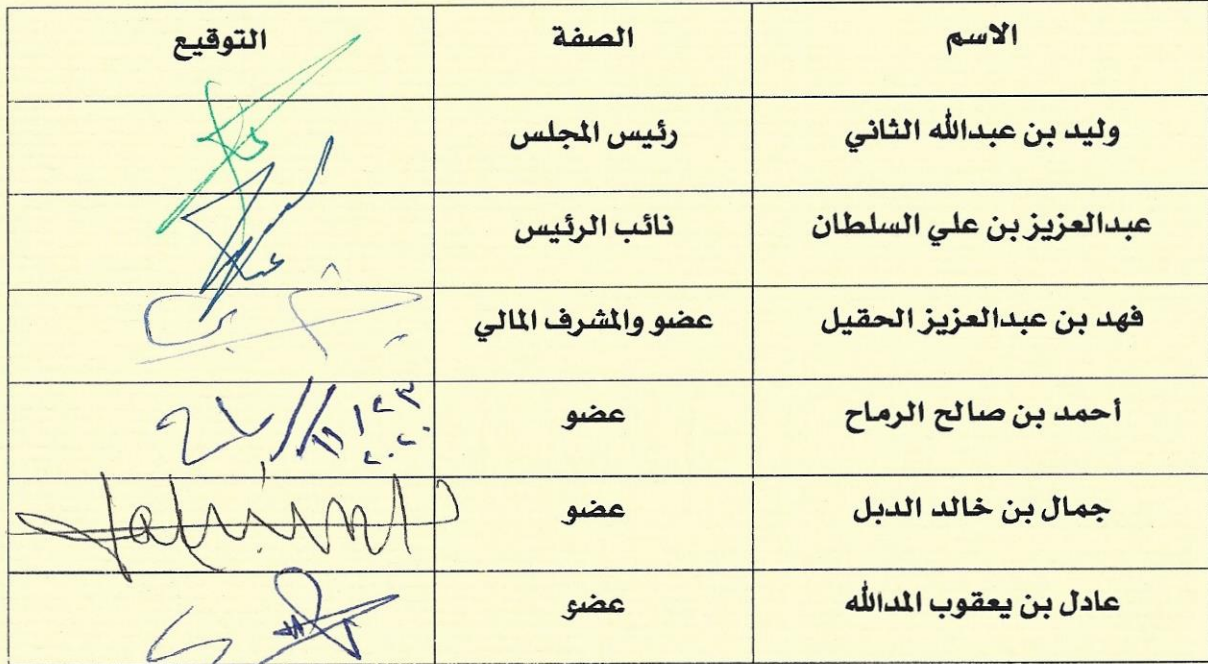 الاسم الصفة التوقيع
وليد بن عبدالله الثاني رئيس المجلس
عبدالعزيز بن علي السلطان نائب الرئيس
فهد بن عبدالعزيز الحقيل عضو والمشرف المالي
أحمد بن صالح الرماح عضو ٢٣/١١
٢٠٢٠
جمال بن خالد الدبل عضو
عادل بن يعقوب المدالله عضو